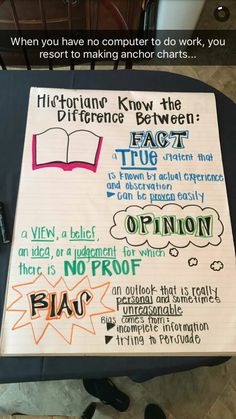 When you have no computer to do work, you
resort to making anchor charts...
Historians Know the
Difference Between:
FACT
a TRUE statent that
is known by actual experience
and observation
can be proven easily
OPINION
a VIEW, a belief,
an idea, or a judgement for which
there is NO PROOF
BIAS
an outlook that is really
personal and sometimes
unreasonable
Bias comes from:
incomplete information
trying to persuade